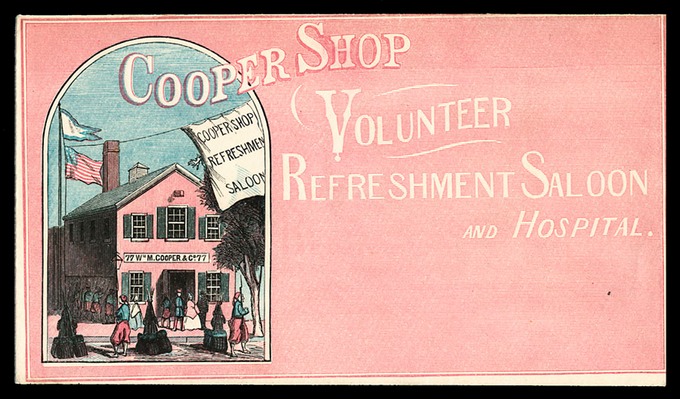 COOPER SHOP
VOLUNTEER
REFRESHMENT SALOON
AND HOSPITAL.
COOPER SHOP
REFRESHMEN
SALOON
77 WM. COOPER & CO. 77